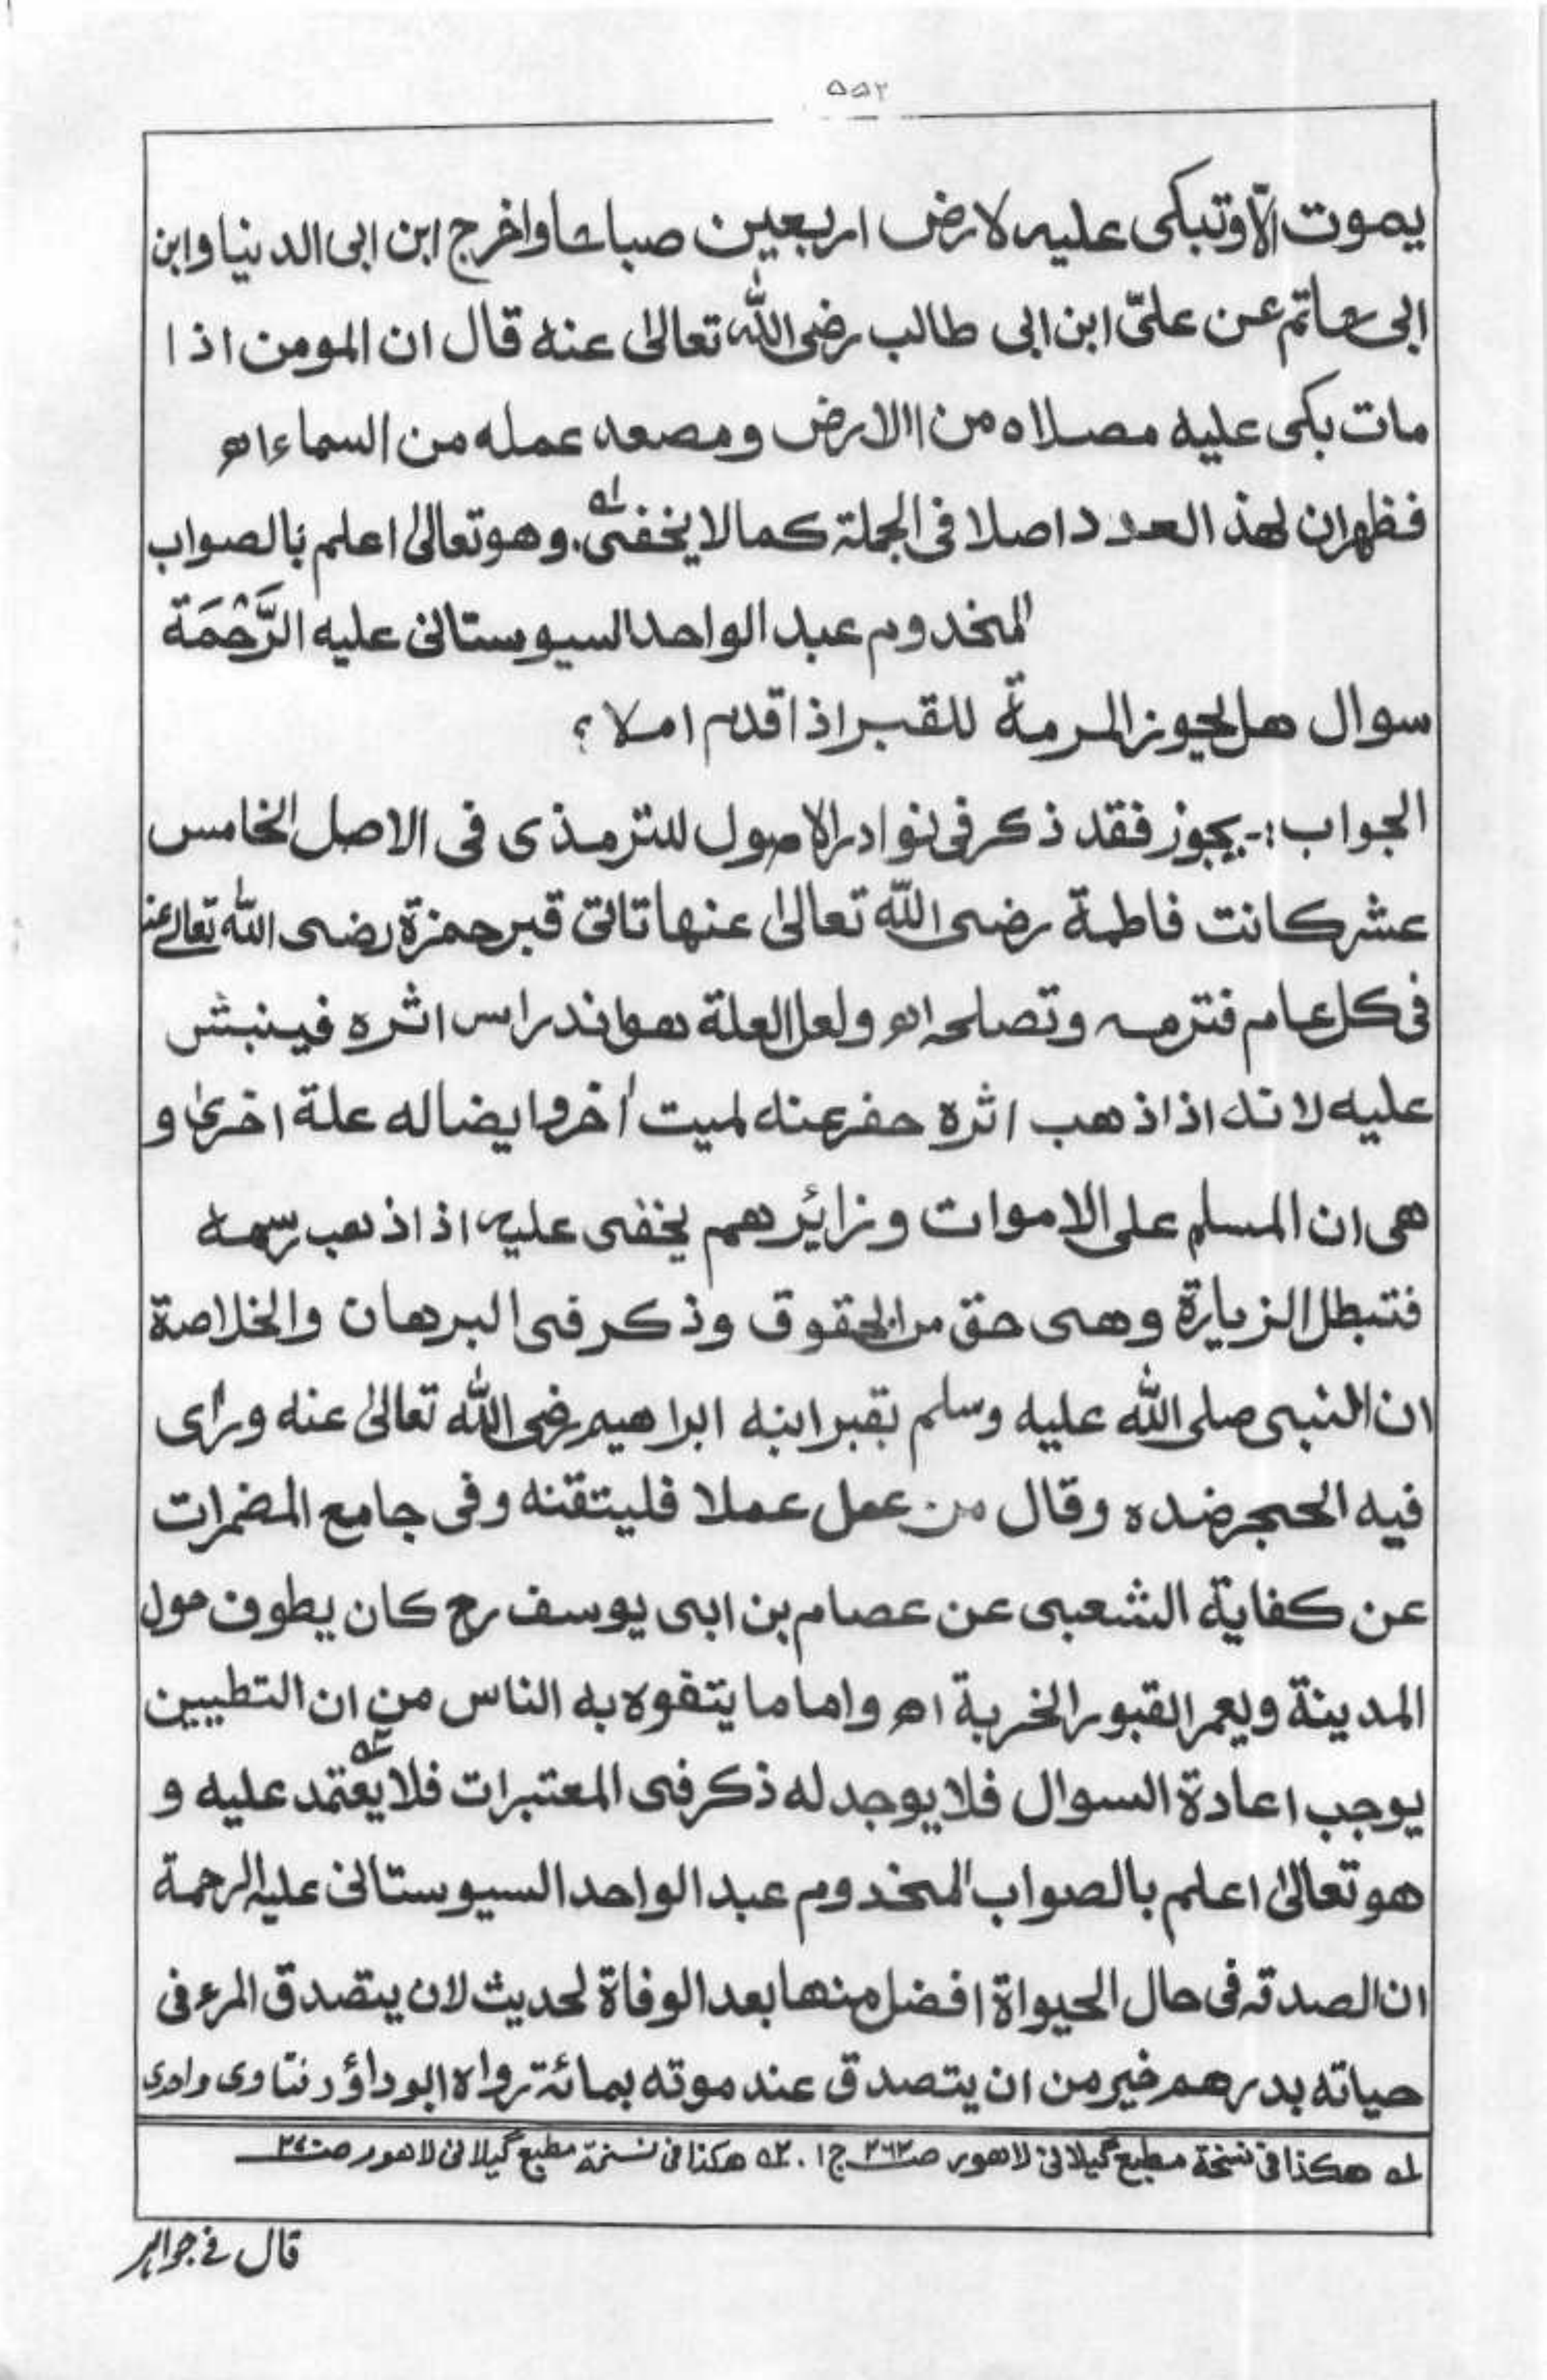 ۵۵۲
يموت الّا وتبكى عليه لارض اربعين صباحا واخرج ابن ابى الدنيا وابن
ابى حاتم عن علىّ ابن ابى طالب رضى الله تعالىٰ عنه قال ان المومن اذا
مات بكى عليه مصلاه من االارض ومصعد عمله من السماء اھ
فظهران لهذ العدد اصلا فى الجملة كما لا يخفى؂۱. وهو تعالىٰ اعلم بالصواب
المخدوم عبد الواحد السيوستانى عليه الرَّحْمَة
سوال هل يجوز المرمة للقبر اذا قدم ام لا ؟
الجواب :- يجوز فقد ذكر فى نوادر الاصول للترمذى فى الاصل الخامس
عشر كانت فاطمة رضى الله تعالىٰ عنها تاتى قبر حمزة رضى الله تعالےٰ عنه
فى كل عام فترمه وتصلحه اھ ولعل العلة هو اندراس اثره فينبش
عليه لانه اذا ذهب اثره حفر عنه لميت اٰخر وايضا له علة اخرىٰ و
هى ان المسلم على الاموات وزائرهم يخفى عليه اذا ذهب رسمه
فتبطل الزيارة وهى حق من الحقوق وذكر فى البرهان والخلاصة
ان النبى صلى الله عليه وسلم بقبر ابنه ابراهيم رضى الله تعالىٰ عنه ورأى
فيه الحجر ضده وقال من عمل عملا فليتقنه وفى جامع المضمرات
عن كفاية الشعبى عن عصام بن ابى يوسف رح كان يطوف حول
المدينة ويعمر القبور الخربة اھ واما ما يتفوه به الناس من ان التطيين
يوجب اعادة السوال فلا يوجد له ذكر فى المعتبرات فلا يعتمد؂۲ عليه و
هو تعالىٰ اعلم بالصواب المخدوم عبد الواحد السيوستانى عليه الرحمة
ان الصدقة فى حال الحيواة افضل منها بعد الوفاة لحديث لان يتصدق المرء فى
حياته بدرهم خير من ان يتصدق عند موته بمائة رواه ابوداؤد فتاوى واحدى
؂۱ هكذا فى نسخة مطبع گيلانى لاهور ص۲۶۲ ج۱ . ؂۲ هكذا فى نسخة مطبع گيلانى لاهور ص
قال فے جواہر